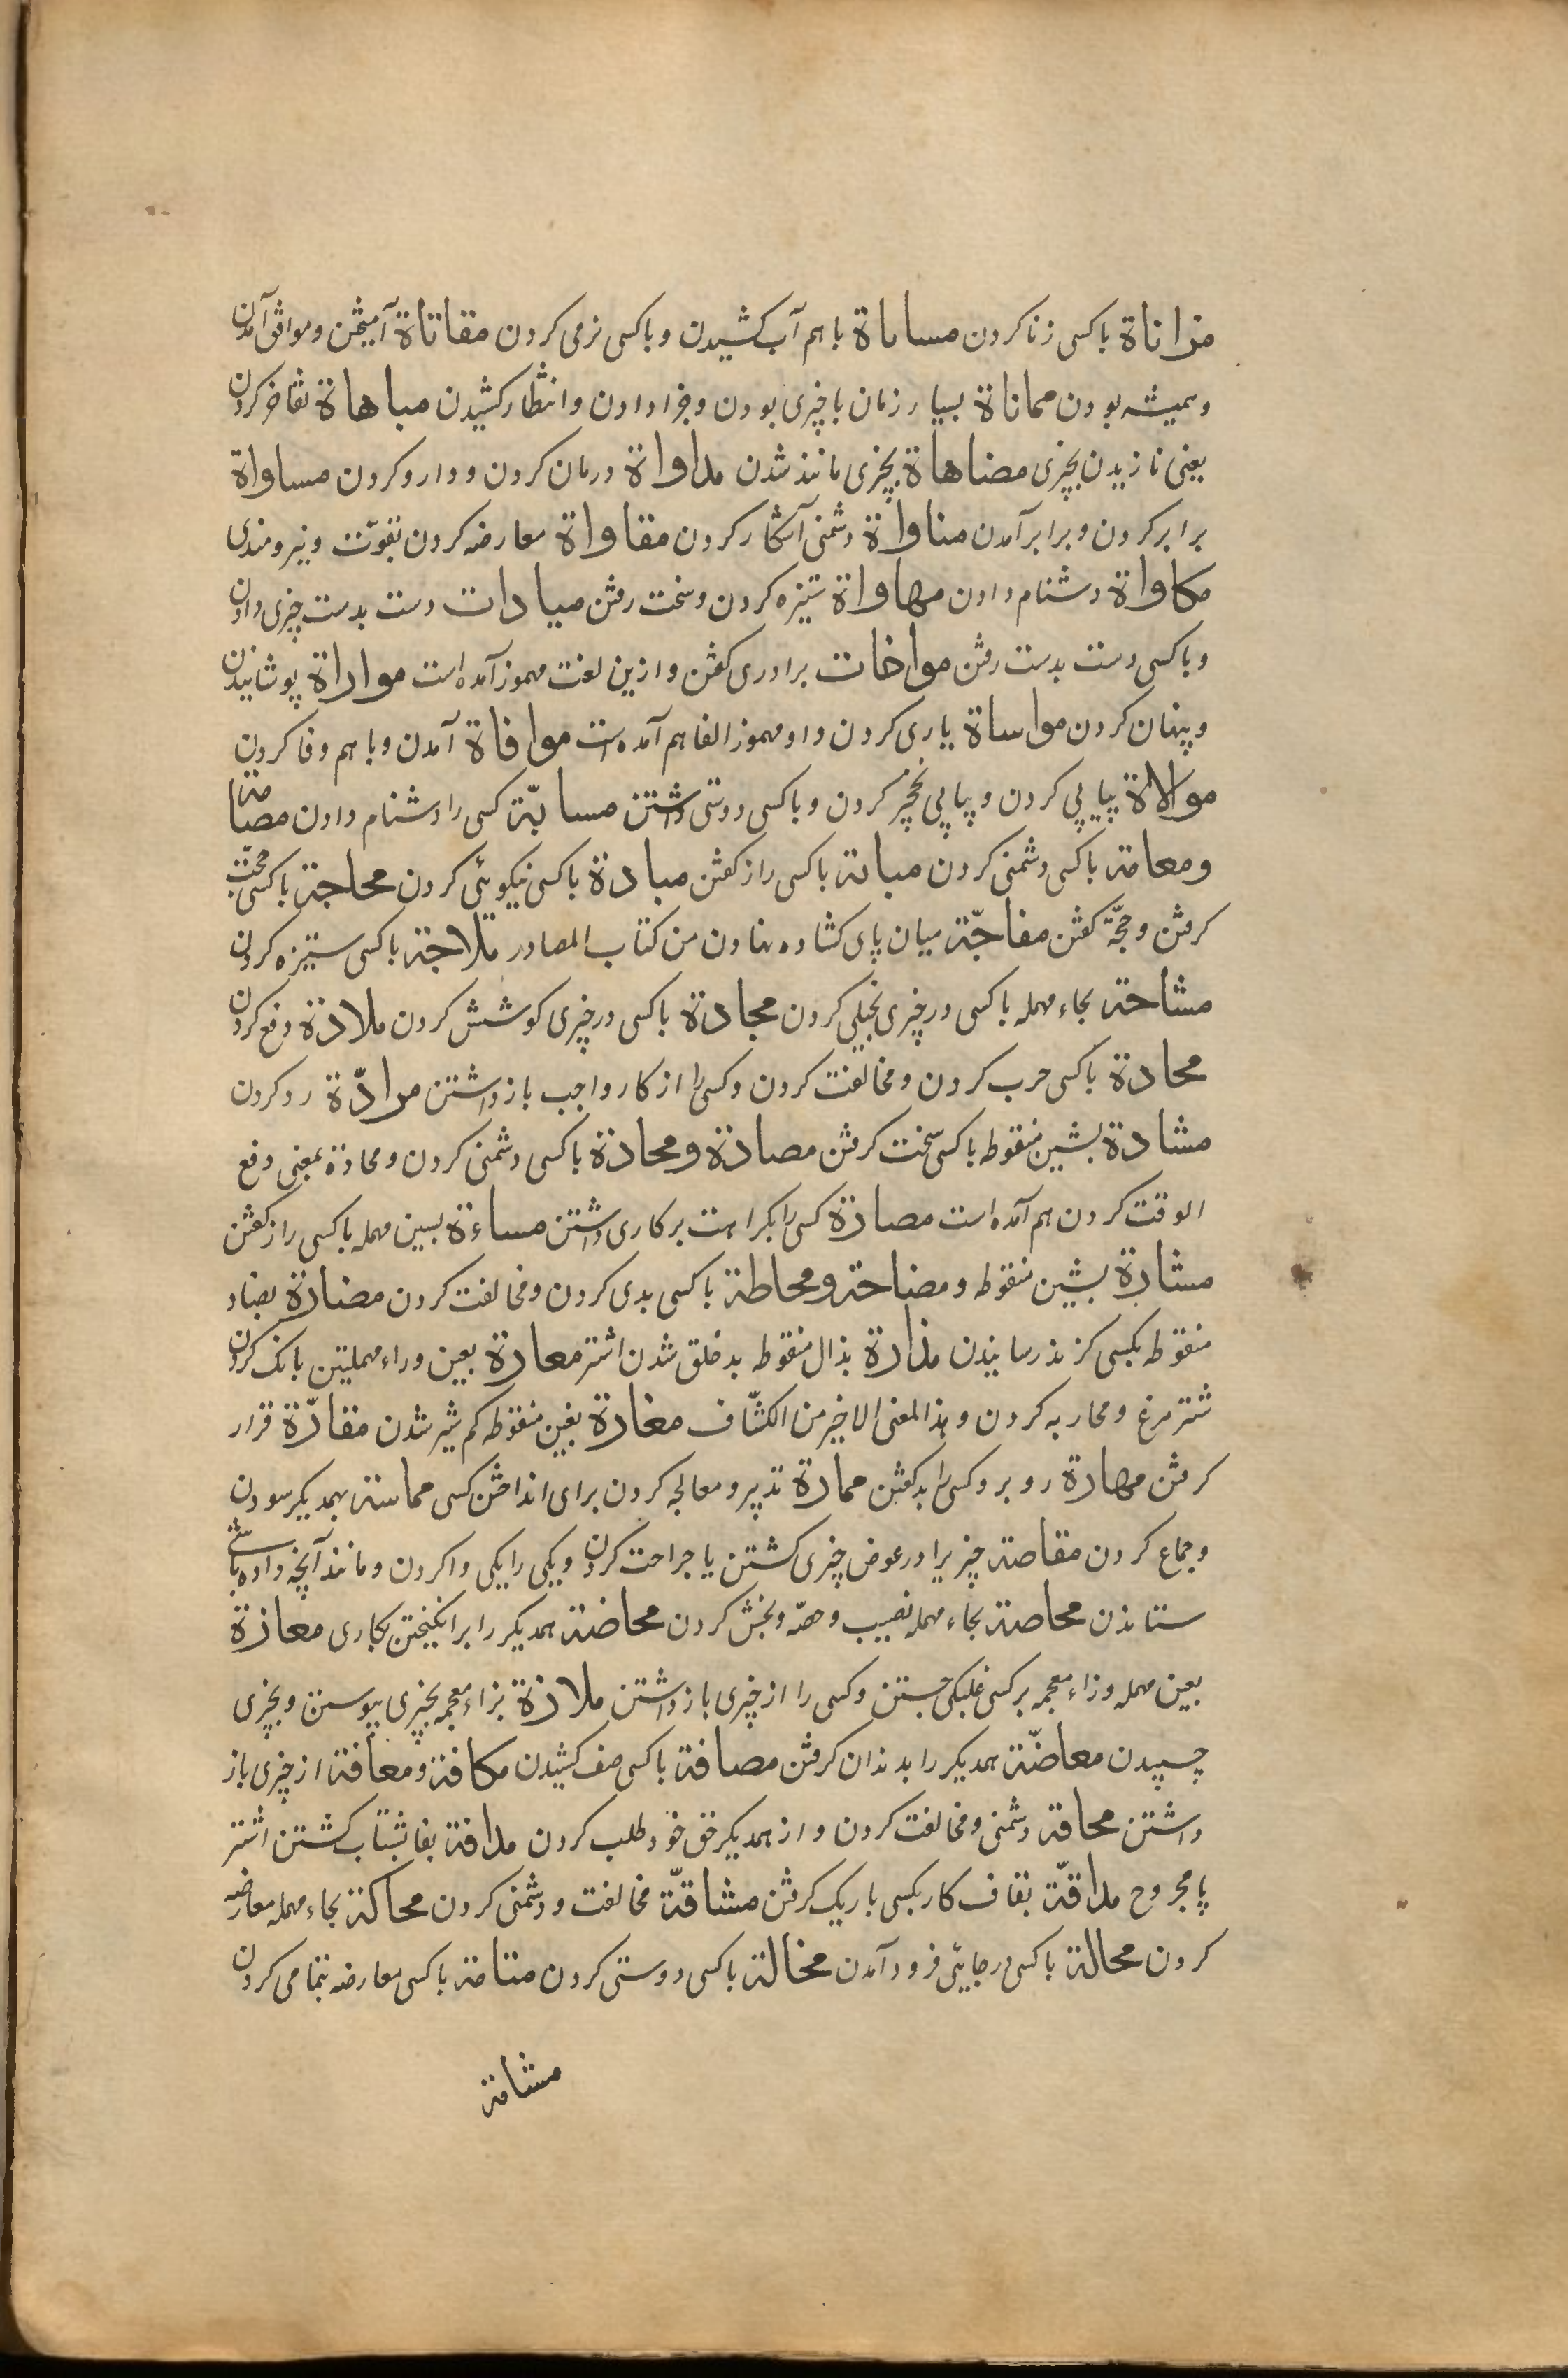 مزاناة باکسی زنا کردن مساناة باهم آب کشیدن و باکسی نرمی کردن مقاناة آمیختن و موافق آمدن
و همیشه بودن مماناة بسیار زمان باچیزی بودن و جزا دادن و انتظار کشیدن مباهاة تفاخر کردن
یعنی نازیدن بچیزی مضاهاة بچیزی مانند شدن مداواة درمان کردن و دارو کردن مساواة
برابر کردن و برابر آمدن مناواة دشمنی آشکار کردن مقاواة معارضه کردن بقوّت و نیرومندی
مکاواة دشنام دادن مهاواة ستیزه کردن و سخت رفتن میادات دست بدست چیزی دادن
و باکسی دست بدست رفتن مواخات برادری گفتن و ازین لغت مهموز آمده است مواراة پوشانیدن
و پنهان کردن مواساة یاری کردن و او مهموز الفا هم آمده است موافاة آمدن و باهم وفا کردن
موالاة پیاپی کردن و پیاپی نخچیر کردن و باکسی دوستی داشتن مسابّة کسی را دشنام دادن مصامة
ومعامة باکسی دشمنی کردن مباثة باکسی راز گفتن مبادة باکسی نیکوئی کردن محاجة باکسی حجّت
گرفتن و حجّة گفتن مفاجّة میان پای گشاده نهادن من کتاب المصادر ملاجة باکسی ستیزه کردن
مشاحة بحاء مهمله باکسی در چیزی بخیلی کردن مجادة باکسی در چیزی کوشش کردن ملادة دفع کردن
محادة باکسی حرب کردن و مخالفت کردن و کسی را از کار واجب بازداشتن مرادّة رد کردن
مشادة بشین منقوطه باکسی سخت گرفتن مصادة ومحادة باکسی دشمنی کردن و محادة بمعنی دفع
الوقت کردن هم آمده است مصارة کسی را بکراهت بر کاری داشتن مساءة بسین مهمله باکسی راز گفتن
مشارة بشین منقوطه و مضاحة ومحاطة باکسی بدی کردن و مخالفت کردن مضارة بضاد
منقوطه بکسی گزند رسانیدن مذارة بذال منقوطه بدخلق شدن اشتر معارة بعین و راء مهملتین بانک کردن
شترمرغ و محاربه کردن و هذا المعنی الاخیر من الکشّاف مغارة بغین منقوطه کم شیر شدن مقارّة قرار
گرفتن مهارة رو بروکسی را بد گفتن ممارة تدبیر و معالجه کردن برای انداختن کسی مماسة بهمدیگر سودن
و جماع کردن مقاصة چیزیرا در عوض چیزی کشتن یا جراحت کردن و یکی را یکی واکردن و مانند آنچه داده باشی
ستاندن محاصة بحاء مهمله نصیب و حصّه و بخش کردن محاضة همدیگر را برانگیختن بکاری معازة
بعین مهمله و زاء معجمه بر کسی غلبگی جستن و کسی را از چیزی بازداشتن ملازة بزاء معجمه بچیزی پیوستن و بچیزی
چسپیدن معاضّة همدیگر را بدندان گرفتن مصافة باکسی صف کشیدن مکافة ومعافة از چیزی باز
داشتن محاقة دشمنی و مخالفت کردن و از همدیگر حق خود طلب کردن مدافة بفا بشتاب کشتن اشتر
پا مجروح مداقّة بقاف کار بکسی باریک گرفتن مشاقّة مخالفت و دشمنی کردن محاکة بحاء مهمله معارضه
کردن محالة باکسی در جایئی فرود آمدن مخالة باکسی دوستی کردن متامة باکسی معارضه بتمامی کردن
مشامة